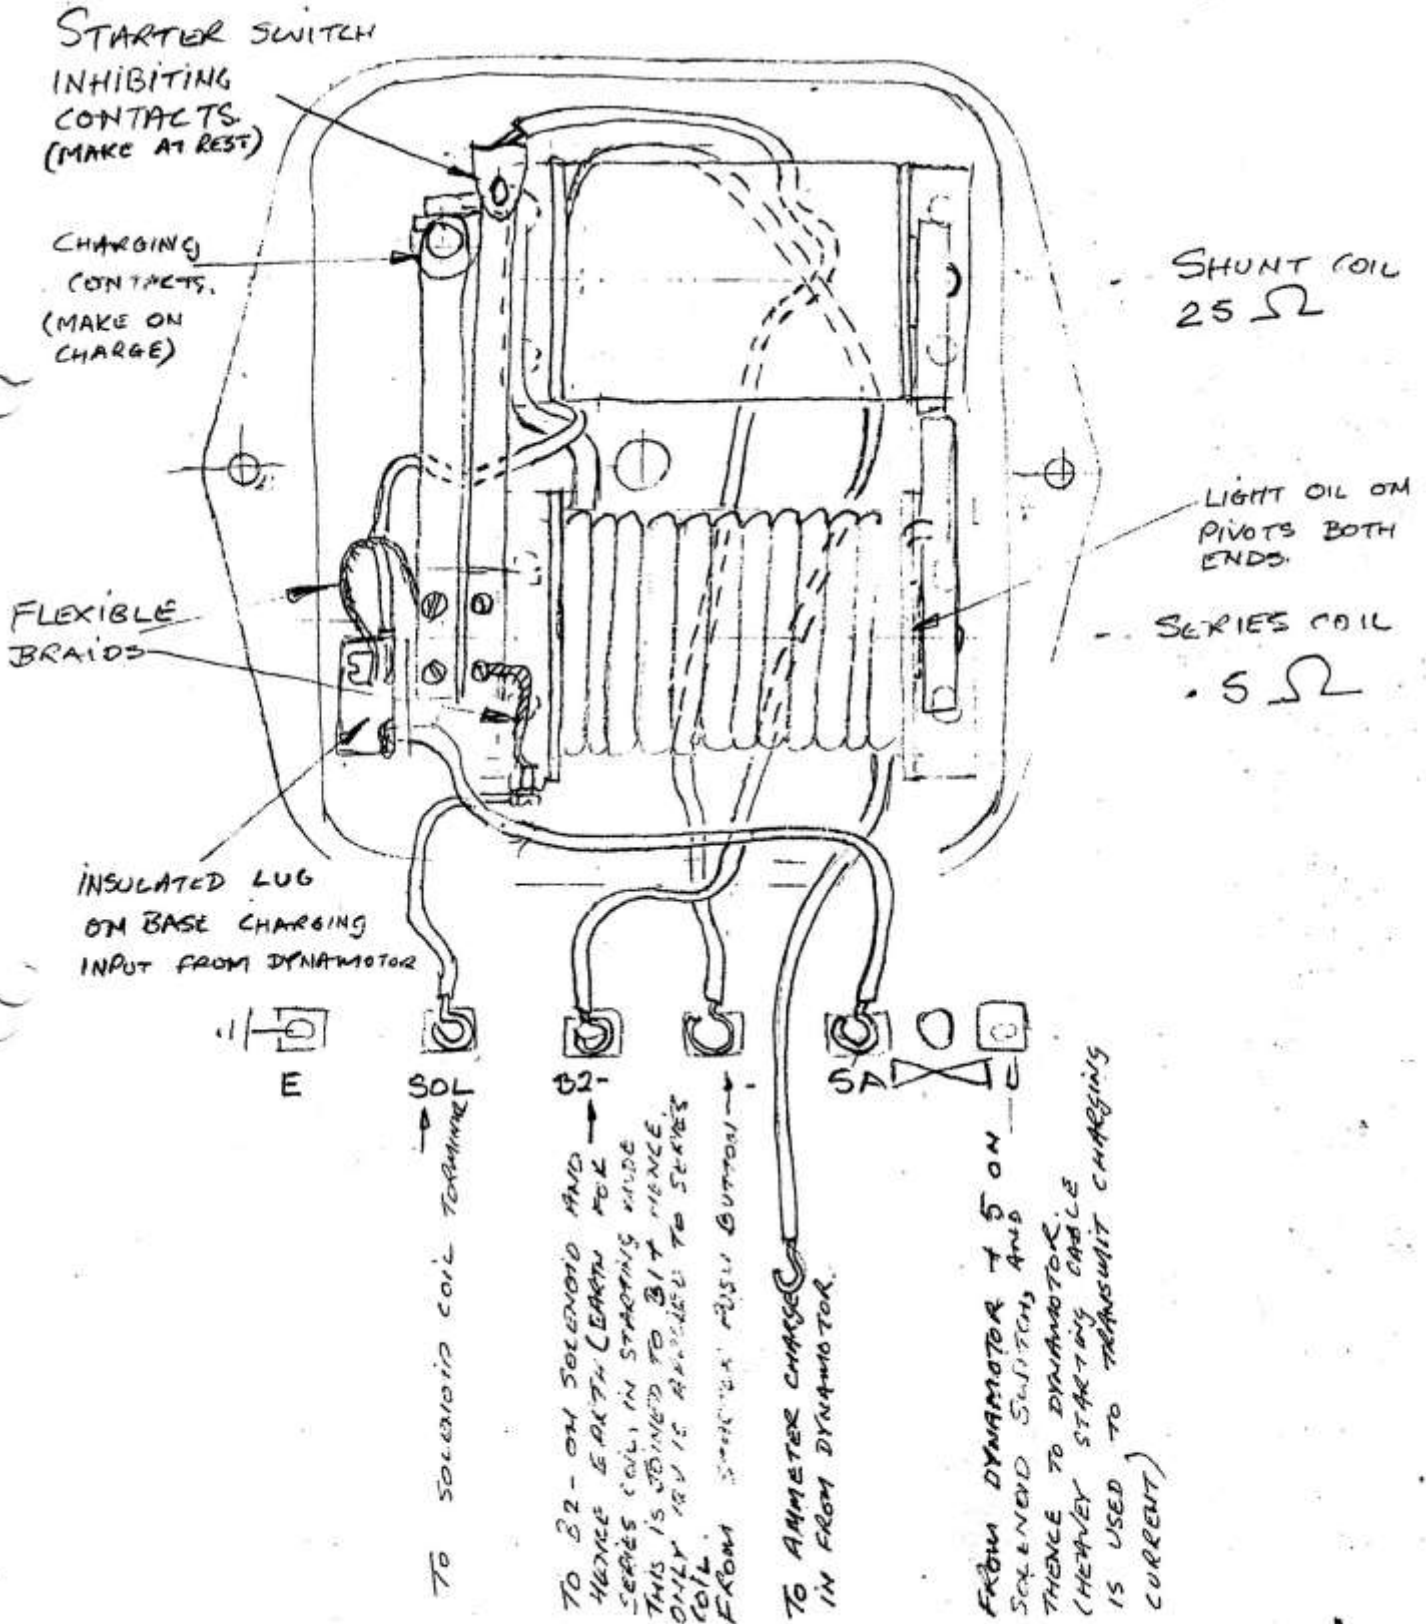 STARTER SWITCH
INHIBITING
CONTACTS
(MAKE AT REST)
CHARGING
CONTACTS.
(MAKE ON
CHARGE)
SHUNT COIL
25 Ω
LIGHT OIL ON
PIVOTS BOTH
ENDS.
FLEXIBLE
BRAIDS
SERIES COIL
.5 Ω
INSULATED LUG
ON BASE CHARGING
INPUT FROM DYNAMOTOR
E
SOL
B2-
-
5A
TO SOLENOID COIL TERMINAL
TO B2- ON SOLENOID AND
HENCE EARTH (EARTH FOR
SERIES COIL, IN STARTING MODE
THIS IS JOINED TO B1+ HENCE
ONLY IS APPLIED TO SERIES
COIL.
FROM PUSH BUTTON
TO AMMETER CHARGE
IN FROM DYNAMOTOR.
FROM DYNAMOTOR + 5 ON
SOLENOID SWITCH, AND
THENCE TO DYNAMOTOR.
(HEAVEY STARTING CABLE
IS USED TO TRANSMIT CHARGING
CURRENT)